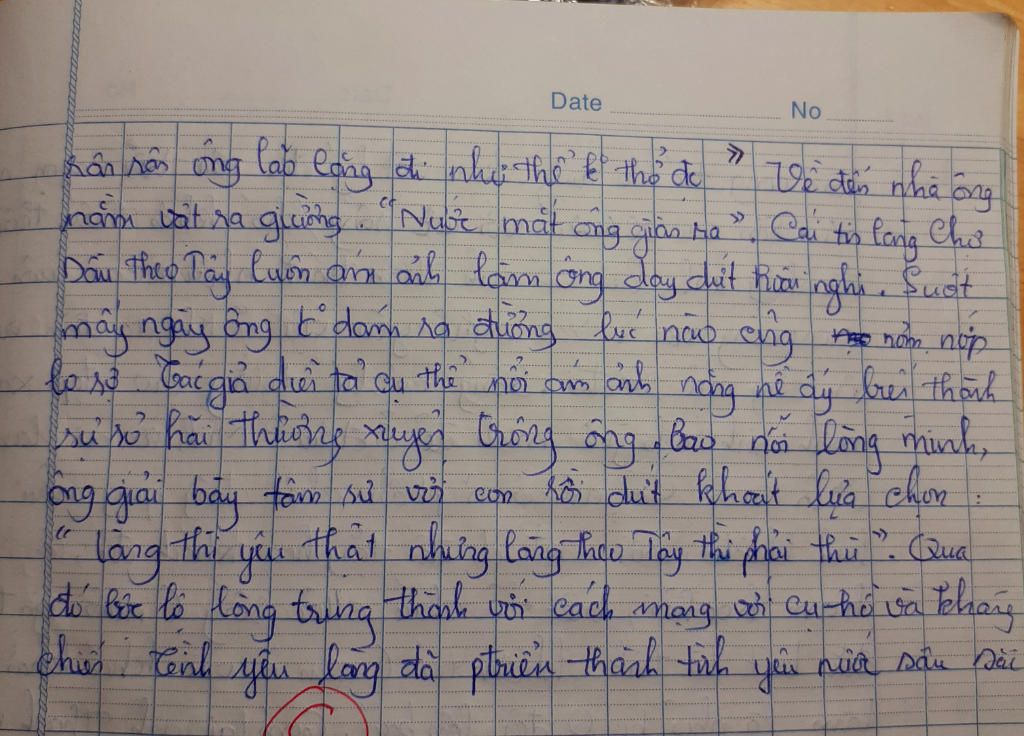 Date No
rân rân ông lão lặng đi như thể k thở đc » Về đến nhà ông
nằm vật ra giường. "Nước mắt ông giàn ra". Cái tin làng Chợ
Dầu theo Tây luôn ám ảnh làm ông day dứt hoài nghi. Suốt
mấy ngày ông k dám ra đường lúc nào cũng nơm nớp
lo sợ. Tác giả diễn tả cụ thể nỗi ám ảnh nặng nề ấy biến thành
sự sợ hãi thường xuyên trong ông. Bao nỗi lòng mình,
ông giải bày tâm sự với con rồi dứt khoát lựa chọn:
"Làng thì yêu thật nhưng làng theo Tây thì phải thù". Qua
đó bộc lộ lòng trung thành với cách mạng với cụ Hồ và kháng
chiến. Tình yêu làng đã ptriển thành tình yêu nước sâu sắc